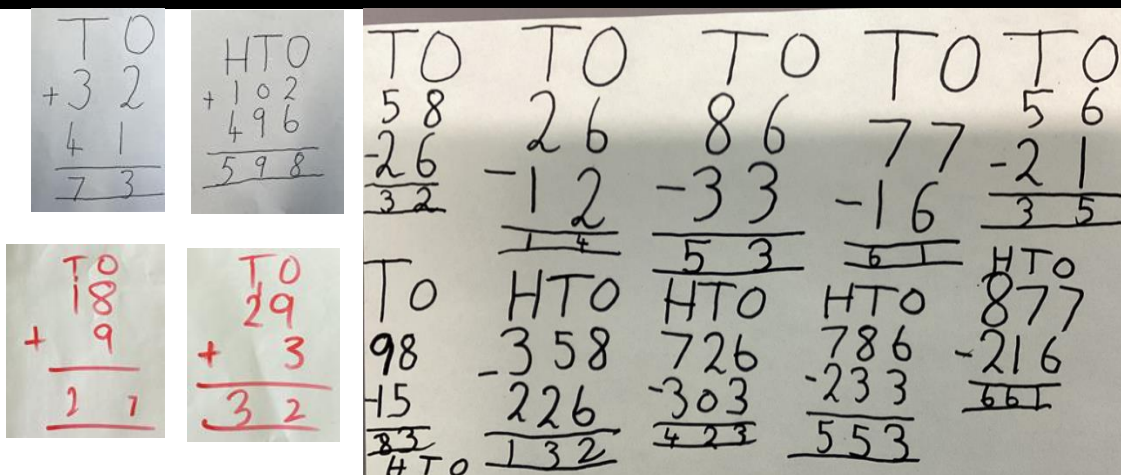 T O
+ 3 2
4 1
7 3
H T O
+ 1 0 2
4 9 6
5 9 8
T O
18
+ 9
2 7
T O
29
+ 3
3 2
T O
5 8
-2 6
3 2
T O
2 6
-1 2
1 4
T O
8 6
-3 3
5 3
T O
7 7
-1 6
6 1
T O
5 6
-2 1
3 5
T O
98
-15
83
H T O
H T O
358
-226
132
H T O
726
-303
423
H T O
786
-233
553
H T O
877
-216
661